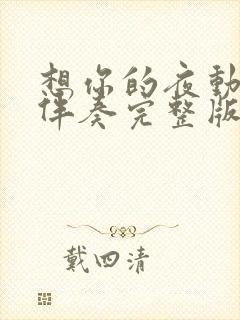 想你的夜動
伴奏完整版
戴四清